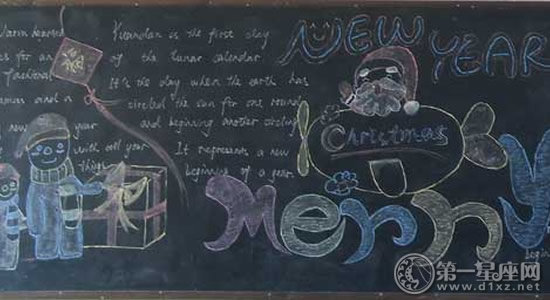 Warm hearted
es for an
fashional
mas and a
new year
with all your
things
Yuandan is the first day
of the lunar calendar
It's the day when the earth has
circled the sun for one round
and beginning another circling
It represents a new
beginning of a year.
NEW YEAR
Christmas
Merry
begin
第一星座网
www.d1xz.net